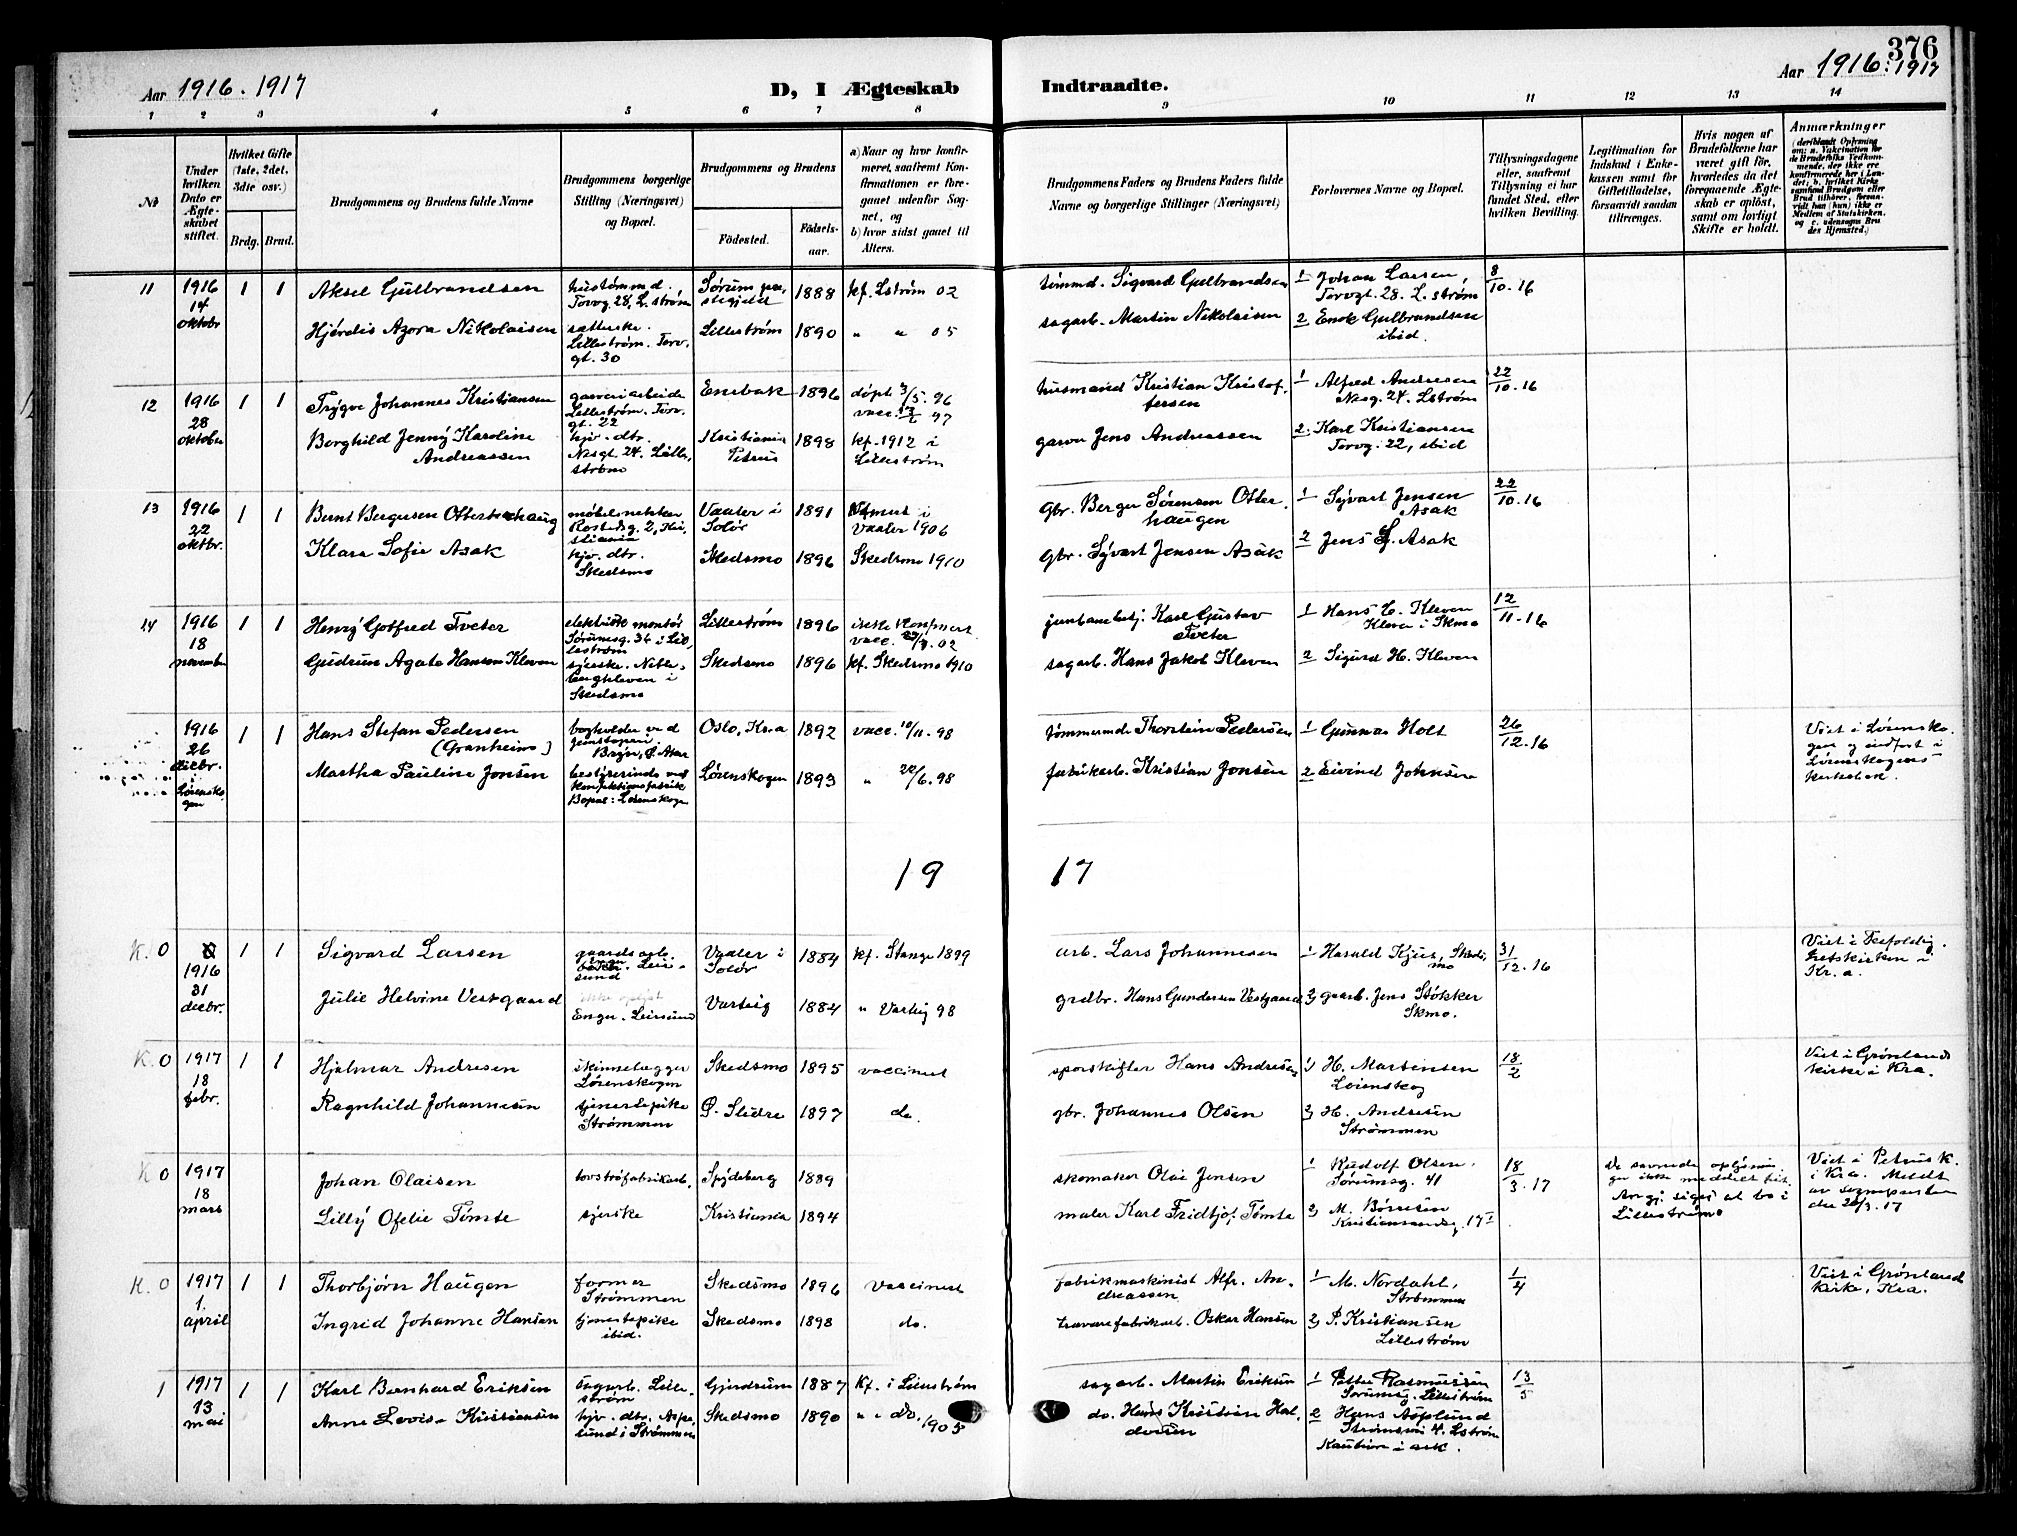 376
Aar 1916. 1917
D, I Ægteskab Indtraadte.
Aar 1916. 1917
1 2 3 4 5 6 7 8 9 10 11 12 13 14
№
Under hvilken Dato er Ægteskabet stiftet.
Hvilket Gifte (1ste, 2det, 3die osv.)
Brdg. Brud.
Brudgommens og Brudens fulde Navne
Brudgommens borgerlige Stilling (Næringsvei) og Bopæl.
Brudgommens og Brudens
Födested. Födselsaar.
a) Naar og hvor konfirmeret, saafremt Konfirmationen er foregaaet udenfor Sognet, og
b) hvor sidst gaaet til Alters.
Brudgommens Faders og Brudens Faders fulde Navne og borgerlige Stillinger (Næringsvei)
Forlovernes Navne og Bopæl.
Tillysningsdagene eller, saafremt Tillysning ei har fundet Sted, efter hvilken Bevilling.
Legitimation for Indskud i Enkekassen samt for Giftetilladelse, forsaavidt saadan tiltrænges.
Hvis nogen af Brudefolkene har været gift för, hvorledes da det foregaaende Ægteskab er oplöst, samt om lovligt Skifte er holdt.
Anmærkninger
(deriblandt Oplysning om: a. Vaccination for de Brudefolks Vedkommende, der ikke ere konfirmerede her i Landet; b. hvilket Kirkesamfund Brudgom eller Brud tilhörer, forsaavidt han (hun) ikke er Medlem af Statskirken, og c. udensogns Brudes Hjemsted.)
11 1916 14 oktobr 1 1 Aksel Gulbrandsen
Torvg. 28, L.ström
Sørum prestegjeld 1888 kf. Lström 02
tömmd. Sigvard Gulbrandsen
1 Johan Larsen, Torvgt. 28. L.ström
8/10.16
Hjördis Agora Nikolaisen
Lillestrøm. Torvgt. 30
Lillestrøm 1890 " " 05
sagarb. Martin Nikolaisen
2 Enok Gulbrandsen ibid.
12 1916 28 oktober 1 1 Trygve Johannes Kristiansen
garveriarbeide Lillestrøm. Torvgt. 22
Enebak 1896 döpt 3/5. 96
husmand Kristian Kristoffersen
1 Alfred Andresen Nesg. 24. Lström
22/10.16
Borghild Jenny Karoline Andreassen
hjv. dtr. Nesgt 24. Lillestrøm
Kristiania Petrus 1898 kf. 1912 i Lillestrøm
garver Jens Andreassen
2. Karl Kristiansen Torvg. 22, ibid
13 1916 22 oktbr. 1 1 Bernt Bergersen
Vaaler i Solör 1891
Vaaler 1906
Gbr. Berger Sörensen Otterhaugen
1 Syvart Jensen Asak
22/10.16
Klara Sofie Asak
hjv. dtr. Skedsmo
Skedsmo 1896 Skedsmo 1910
Gbr. Syvart Jensen Asak
2 Jens S. Asak
14 1916 18 november 1 1 Henry Gotfred Tveter
elektrisk montör Sørumsg. 34 i Lillestrøm
Lillestrøm 1896 ikke konfirmert
Karl Gustav Tveter
1 Hans H. Kleven
12/11.16
Gudrun Agate Hansen Kleven
Skedsmo
Skedsmo 1896 kf. Skedsmo 1910
sagarb. Hans Jakob Kleven
2 Sigurd H. Kleven
1916 26 decbr. Lørenskogen 1 1 Hans Stefan Pedersen (Granheim)
bogholder ved jernstøperi Bryn, Ø. Aker
Oslo, Kra 1892 vacc. 10/11.98
tømmermd. Thorstein Pedersen
1 Gunnar Holt
26/12.16
Viet i Lørenskogen og indført i Lørenskogens kirkebok.
Martha Pauline Jonsen
bestyrerinde ved konfektionsfabrik Bopæl: Lørenskogen
Lørenskogen 1893 " 20/6.98
fabrikarb. Kristian Jonsen
2 Eivind Johnsen
19 17
K. 0 1916 31 decbr. 1 1 Sigvard Larsen
gaardsarb.
Vaaler i Solör 1884 kf. Stange 1899
arb. Lars Johannesen
1 Harald Kjus, Skedsmo
31/12.16
Viet i Trefoldighetskirken i Kr.a.
Julie Helvine Vestgaard
Enger. Leirsund
Varteig 1884 " Varteig 98
grdbr. Hans Gundersen Vestgaard
2) gaarb. Jens Stökker Skmo.
K. 0 1917 18 febr. 1 1 Hjalmar Andresen
skinnelægger Lørenskogen
Skedsmo 1895 vaccinert
sporskifter Hans Andresen
1) H. Martinsen Lørenskog
18/2
Viet i Grønlands kirke i Kra.
Ragnhild Johannesen
tjenestepike Strømmen
Ø. Slidre 1897 do.
gbr. Johannes Olsen
2) H. Andresen Strømmen
K 0 1917 18 mars Johan Olaisen
torvströfabrikarb.
Spydeberg 1889
skomaker Olai Jensen
1 Rudolf Olsen. Sørumsg. 41
18/3.17
De savnede oplysninger ikke meddelt hit. Angj. siges at bo i Lillestrøm
Viet i Petrus K. i Kra. Meldt av sognepresten den 20/3.17
Lilly Ofelie Tømte
syerske
Kristiania 1894
maler Karl Fridtjof Tømte
2) M. Børresen Kristiansandsg. 17 I
K. 0 1917 1. april 1 1 Thorbjørn Haugen
former Strømmen
Skedsmo 1896 vaccinert
fabrikmaskinist Alfr. Andreassen
1 M. Nordahl, Strømmen
1/4
Viet i Grønlands kirke, Kra.
Ingrid Johanne Hansen
tjenestepike ibid.
Skedsmo 1898 do.
trævarefabrikarb. Oskar Hansen
2) P. Kristiansen Lillestrøm
1 1917 13 mai 1 1 Karl Bernhard Eriksen
sagarb. Lillestrøm
Gjerdrum 1887 kf. i Lillestrøm
sagarb. Martin Eriksen
1 Petter Rasmussen Sørumsg. Lillestrøm
13/5
Anne Lovise Kristiansen
hjv. dtr. Asplund i Strømmen
Skedsmo 1890 " i do. 1905
do. Hans Kristian Halvorsen
2 Hans Asplund Strømsvei 4. Lstrøm
Kaution i ark.